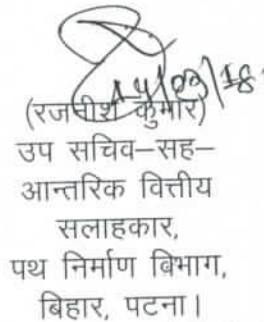 14/09/18
(रजनीश कुमार)
उप सचिव–सह–
आन्तरिक वित्तीय
सलाहकार,
पथ निर्माण विभाग,
बिहार, पटना।